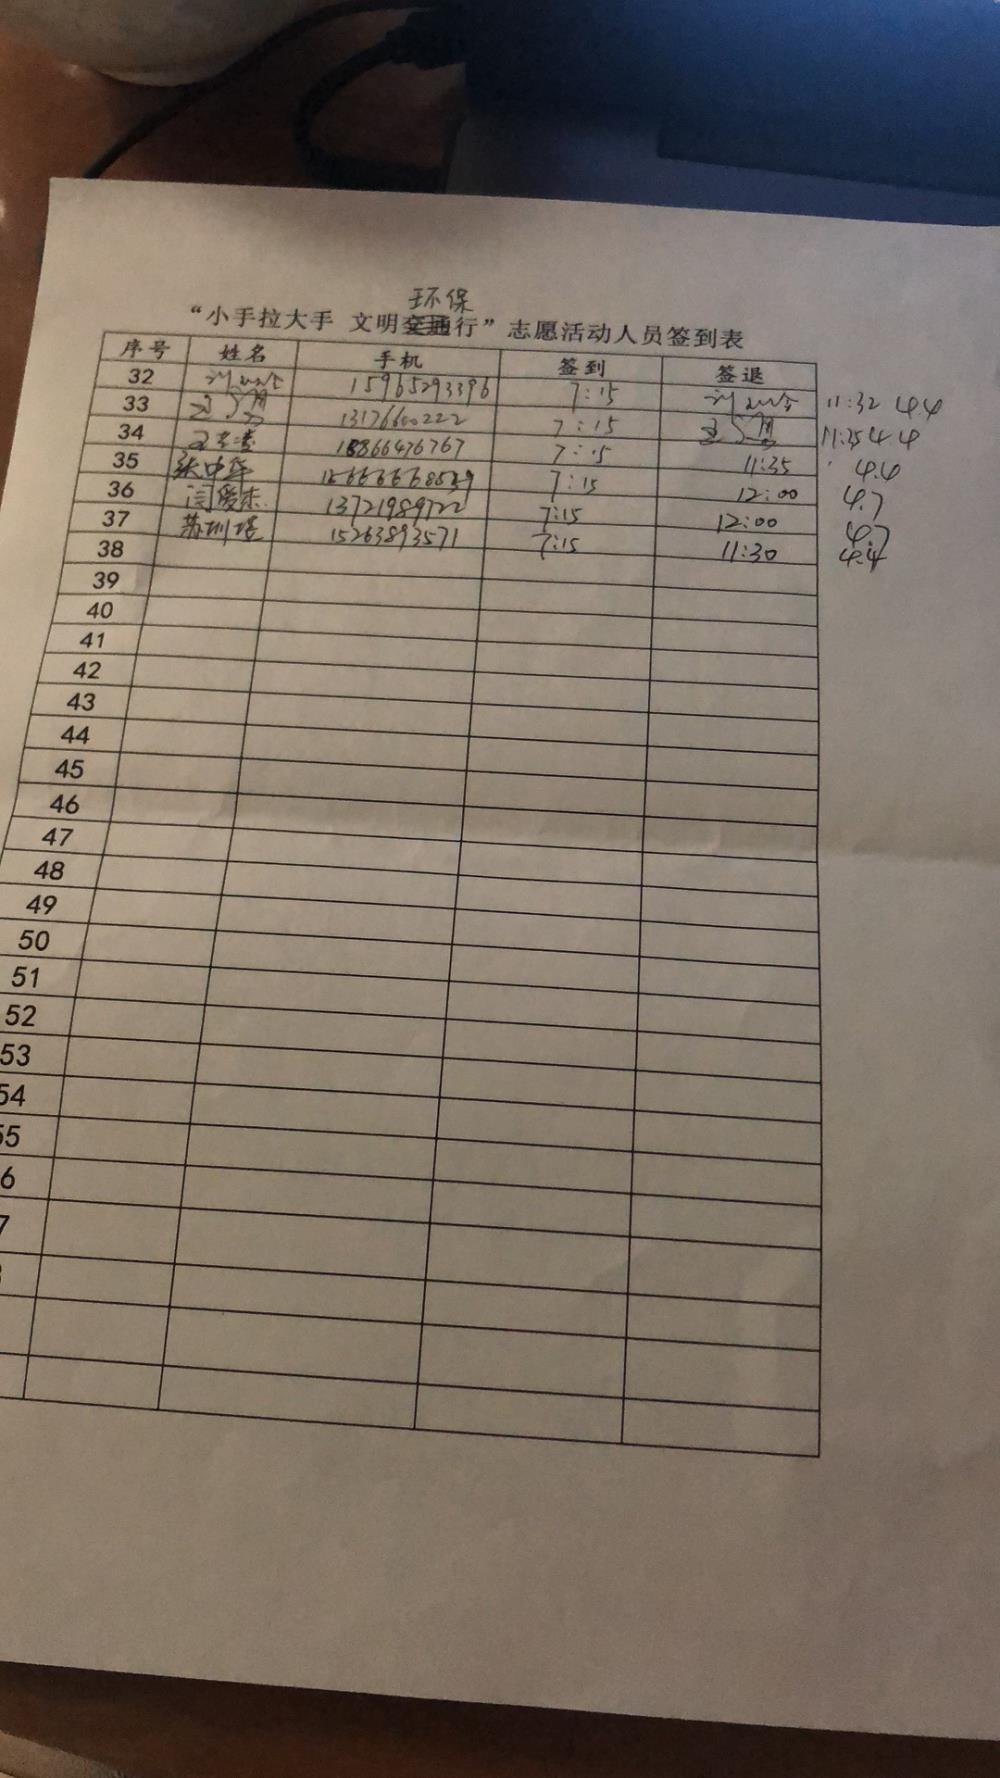 环保
“小手拉大手 文明交通行”志愿活动人员签到表
序号 姓名 手机 签到 签退
32 15965293396 7:15 11:32 4.4
33 13176600222 7:15 11:35 4.4
34 18866476767 7:15 11:35 4.4
35 张中华 7:15 12:00 4.7
36 闫爱杰 13721989722 7:15 12:00 4.7
37 15263893571 7:15 11:30 4.4
38
39
40
41
42
43
44
45
46
47
48
49
50
51
52
53
54
55
6
7